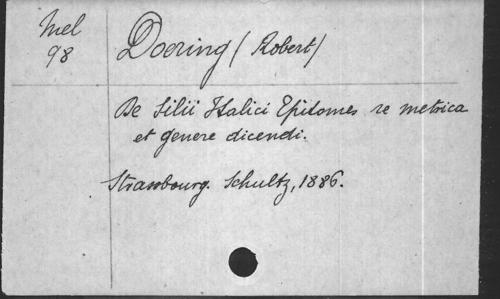 Mel
98
Doering (Robert)
De Silii Italici Epitomes re metrica
et genere dicendi.
Strassbourg. Schultz, 1886.